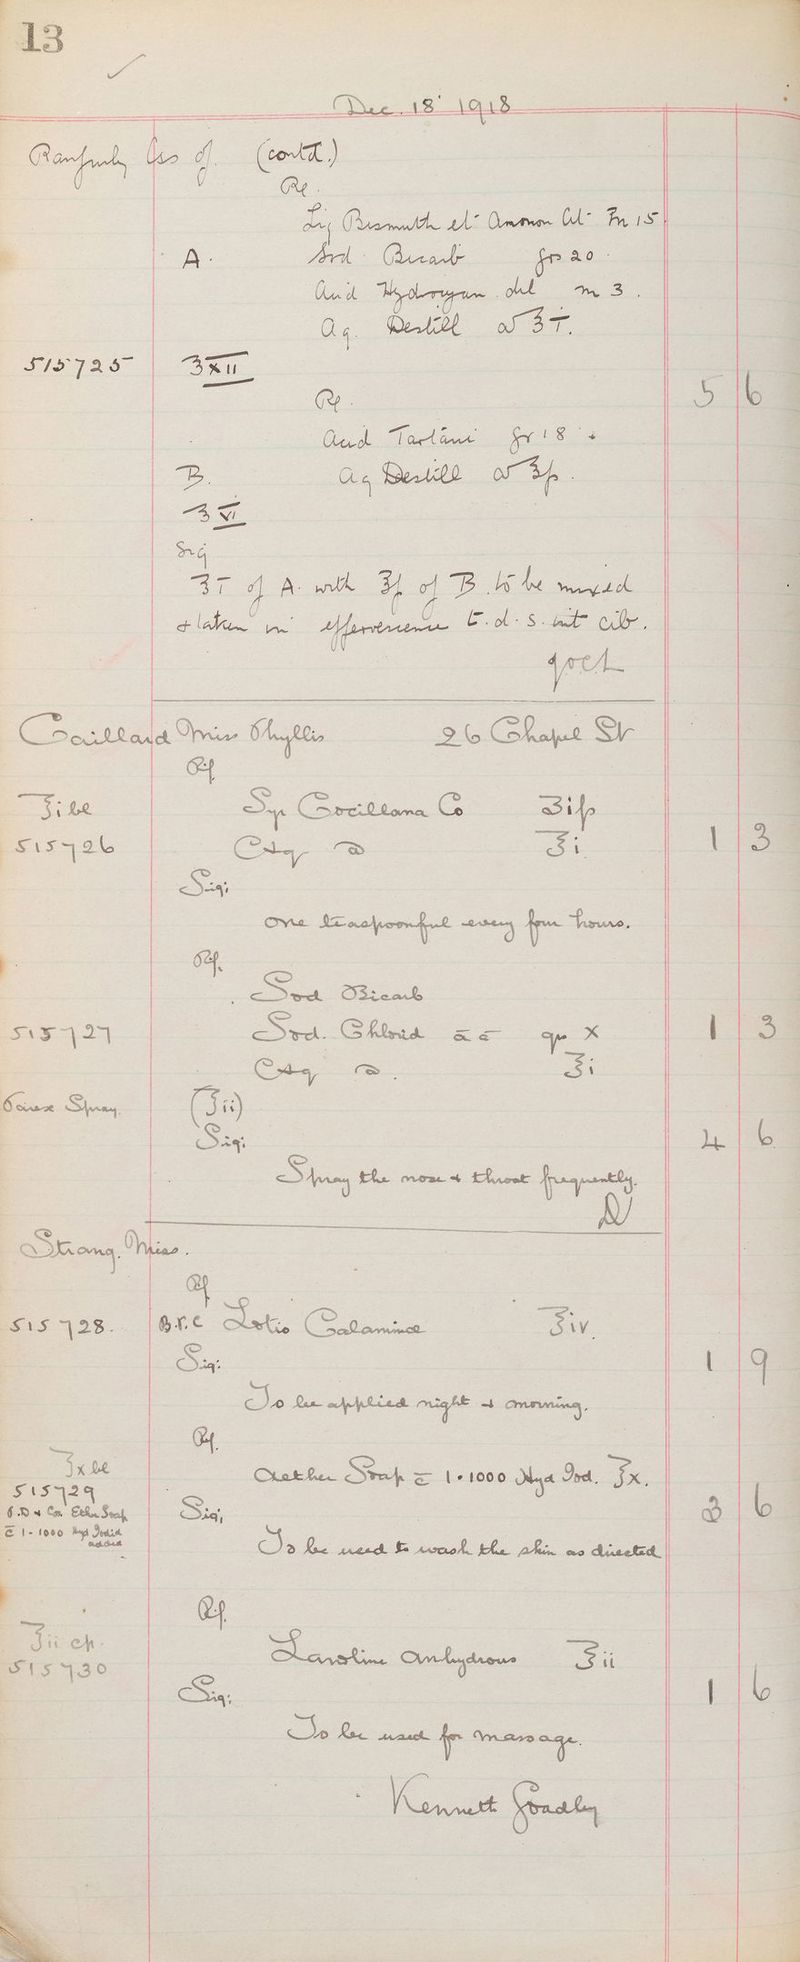 13
Dec. 18 1918
Ranfurly Css of. (contd.)
Rp.
Liq Bismuth et Ammon Cit ʒii 15
A. Sod Bicarb grs 20
Acid Hydrocyan. dil m 3.
Aq. Destill ad ℥ i.
515725 ℥XII 5 6
Rp.
Acid Tartaric gr 18.
B. Aq Destill ad ℥ß.
℥VI
Sig
℥ i of A. with ℥ß of B. to be mixed
& taken in effervescence t.d.s. int cib.
Gaillard Miss Phyllis 26 Chapel St
Rp
℥i bl Syr Cocillana Co ʒiß
515726 Aq ad ℥i. 1 3
Sig:
One teaspoonful every four hours.
Rp.
Sod Bicarb
515727 Sod. Chlorid āā grs X 1 3
Aq ad. ℥i
Spray. (℥ii)
Sig: 4 6
Spray the nose & throat frequently.
Strang. Miss.
Rp
515728. Lotio Calaminae ℥iv.
Sig: 1 9
To be applied night & morning.
Rp.
℥x bl Aether Soap c̄ 1·1000 Hyd Iod. ℥x.
515729
P.D & Co. Ether Soap Sig; 3 6
c̄ 1-1000 Hyd Iodid
added
To be used to wash the skin as directed
Rp.
℥ii cp. Lanoline Anhydrous ℥ii
515730
Sig: 1 6
To be used for massage.
Kenneth Goadby